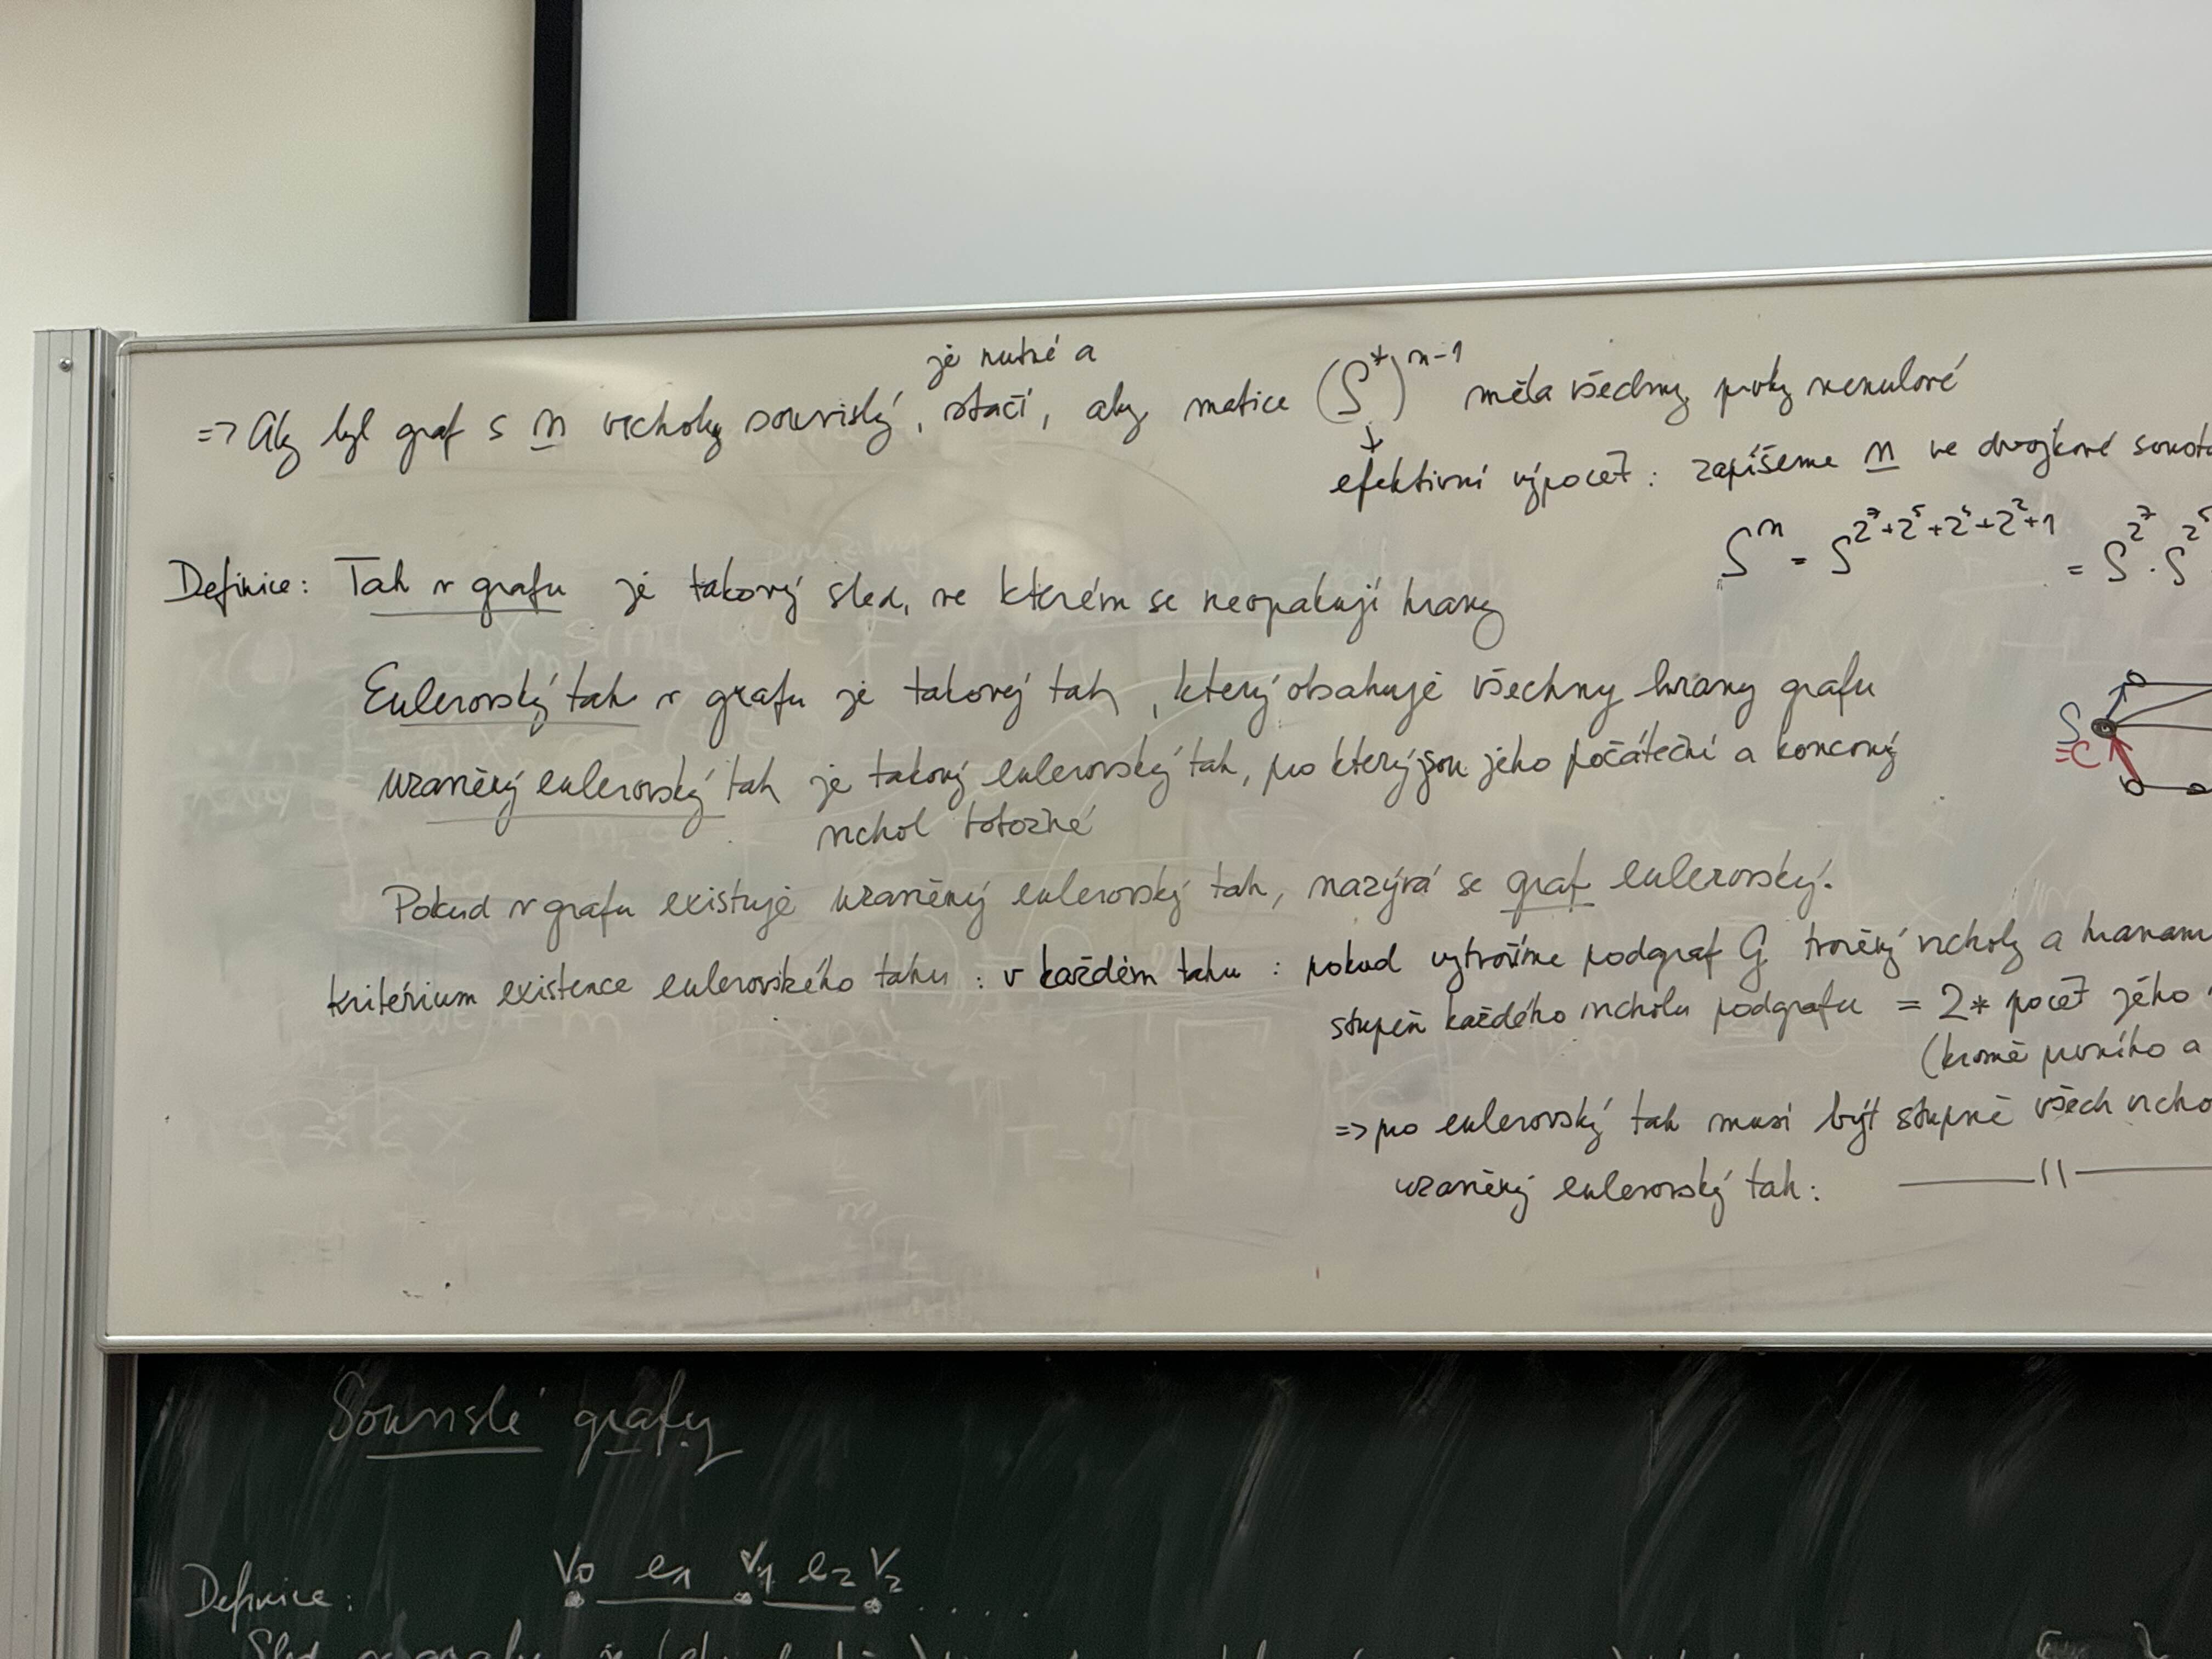 je nutné a
=> Aby byl graf s n vrcholy souvislý, stačí, aby matice (S*)^{n-1} měla všechny prvky nenulové
↓
efektivní výpočet: zapíšeme n ve dvojkové
S^n = S^{2^7+2^5+2^5+2^2+1} = S^{2^7} · S^{2^5}
Definice: Tah v grafu je takový sled, ve kterém se neopakují hrany
Eulerovský tah v grafu je takový tah, který obsahuje všechny hrany grafu
S
=C
uzavřený eulerovský tah je takový eulerovský tah, pro který jsou jeho počáteční a koncový
vrchol totožné
Pokud v grafu existuje uzavřený eulerovský tah, nazývá se graf eulerovský.
kritérium existence eulerovského tahu: v každém tahu: pokud vytvoříme podgraf G tvořený vrcholy a hranami
stupeň každého vrcholu podgrafu = 2* počet jeho
(kromě prvního a
=> pro eulerovský tah musí být stupně všech
uzavřený eulerovský tah: —— 11 ——
Souvislé grafy
Definice: V0 e1 V1 e2 V2 ....
Sled v grafu je